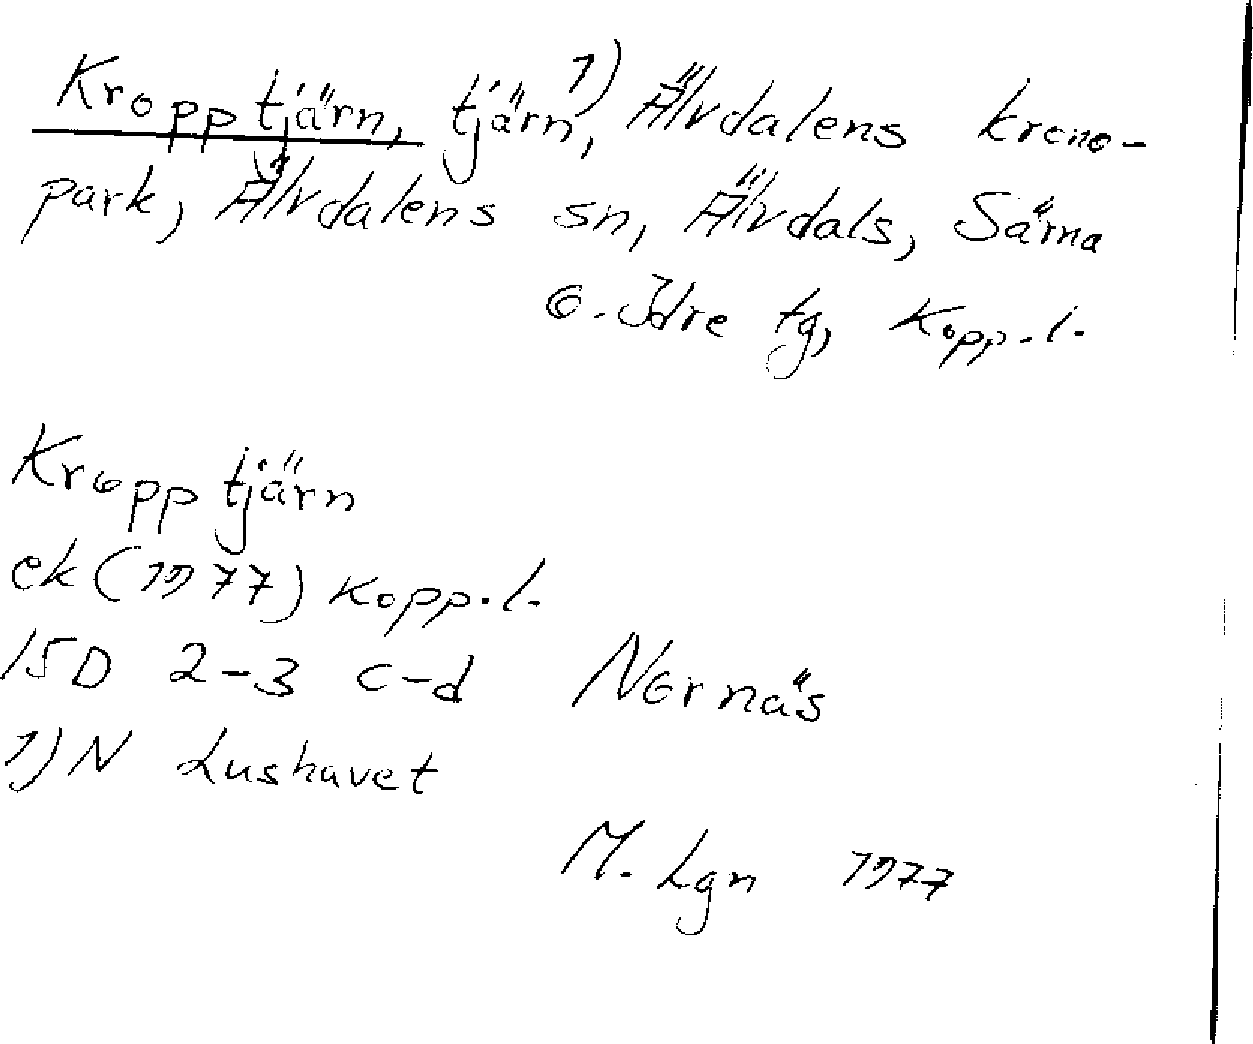 Kropptjärn, tjärn 1), Älvdalens krono-
park, Älvdalens sn, Älvdals, Särna
o. Idre tg, Kopp.l.
Kropptjärn
ek (1977) Kopp.l.
15D 2-3 c-d Nornäs
1) N Lushavet
M. Lgn 1977